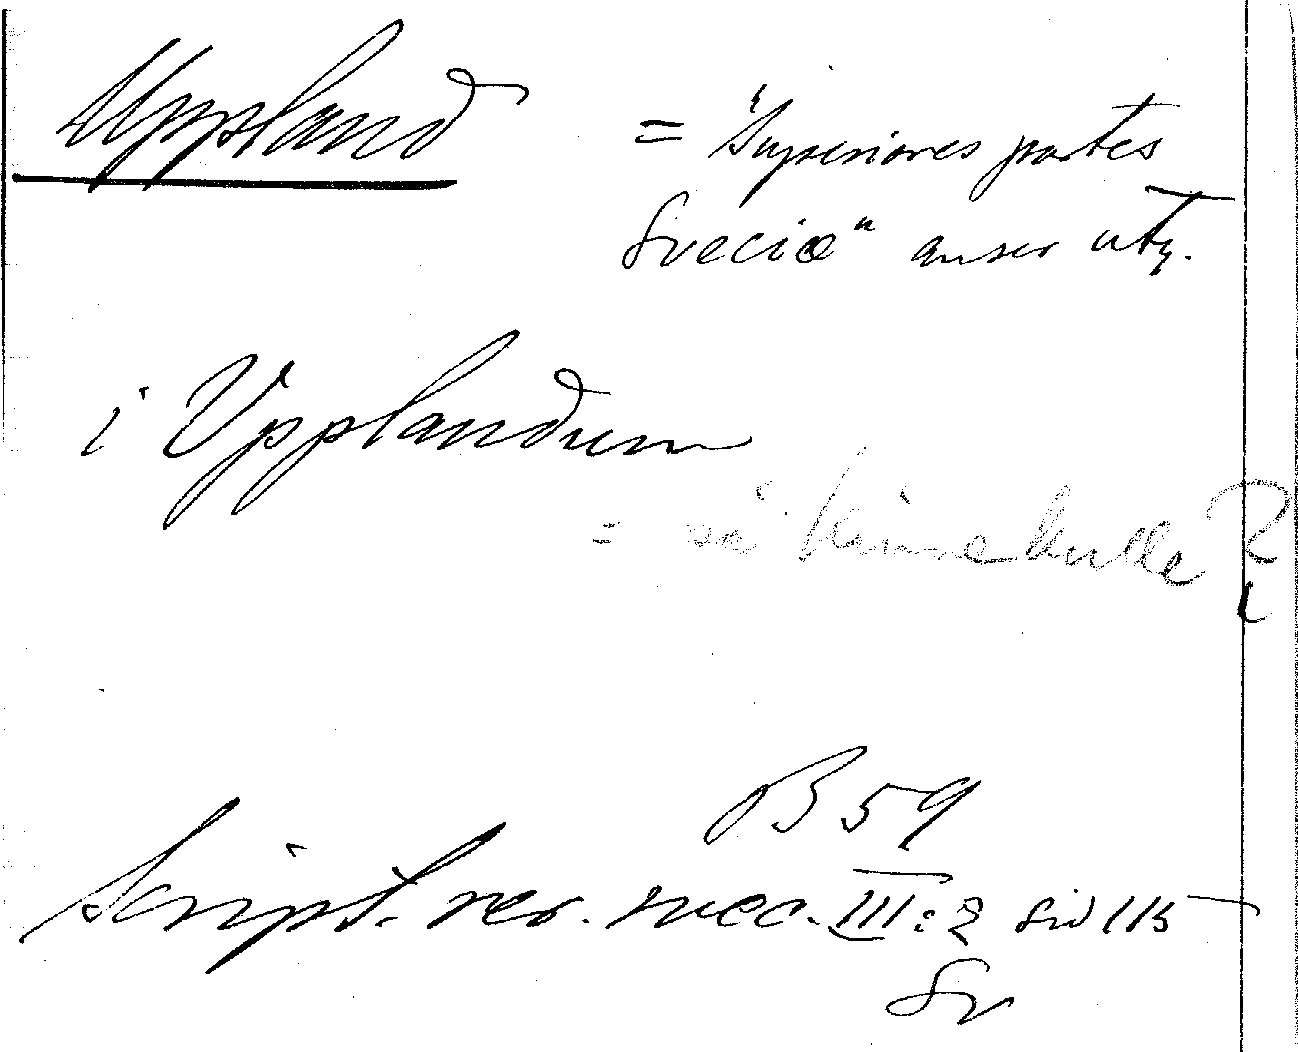 Uppland = "Superiores partes
Sveciæ" anser utg.
i Vpplandum
= så Kinnekulle?
B 59
Script. rer. svec. III:2 sid 115
Sv